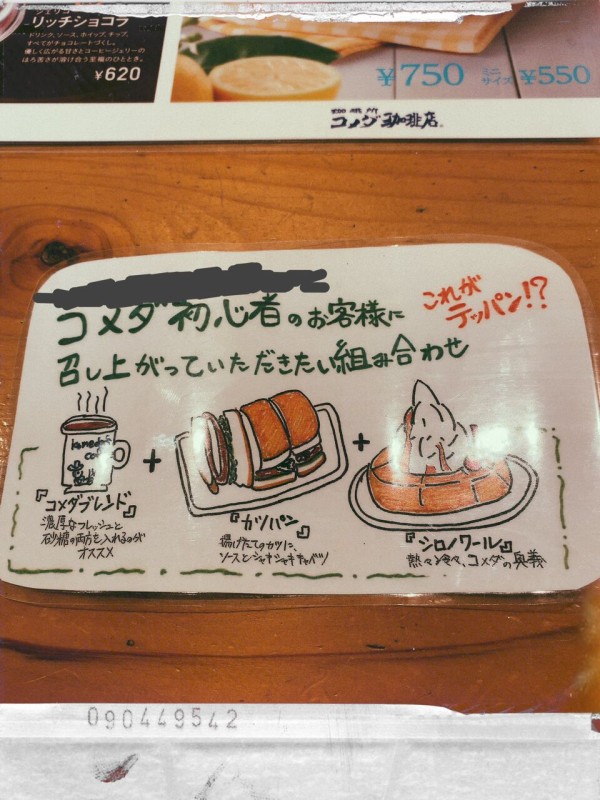 ジェリコ
リッチショコラ
ドリンク、ソース、ホイップ、チップ、
すべてがチョコレートづくし。
優しく広がる甘さとコーヒージェリーの
ほろ苦さが溶け合う至福のひととき。
¥620
¥750 ミニサイズ ¥550
珈琲所
コメダ珈琲店
コメダ初心者のお客様に
召し上がっていただきたい組み合わせ
これが
テッパン!?
Komeda's
Coffee
+
+
『コメダブレンド』
濃厚なフレッシュと
砂糖の両方を入れるのが
オススメ
『カツパン』
揚げたてのカツに、
ソースとシャキシャキキャベツ
『シロノワール』
熱々冷々、コメダの奥義
090449542